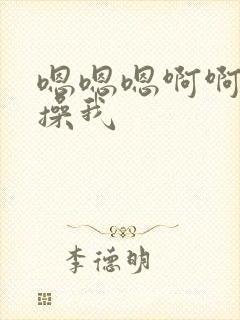 嗯嗯嗯啊啊
操我
李德明